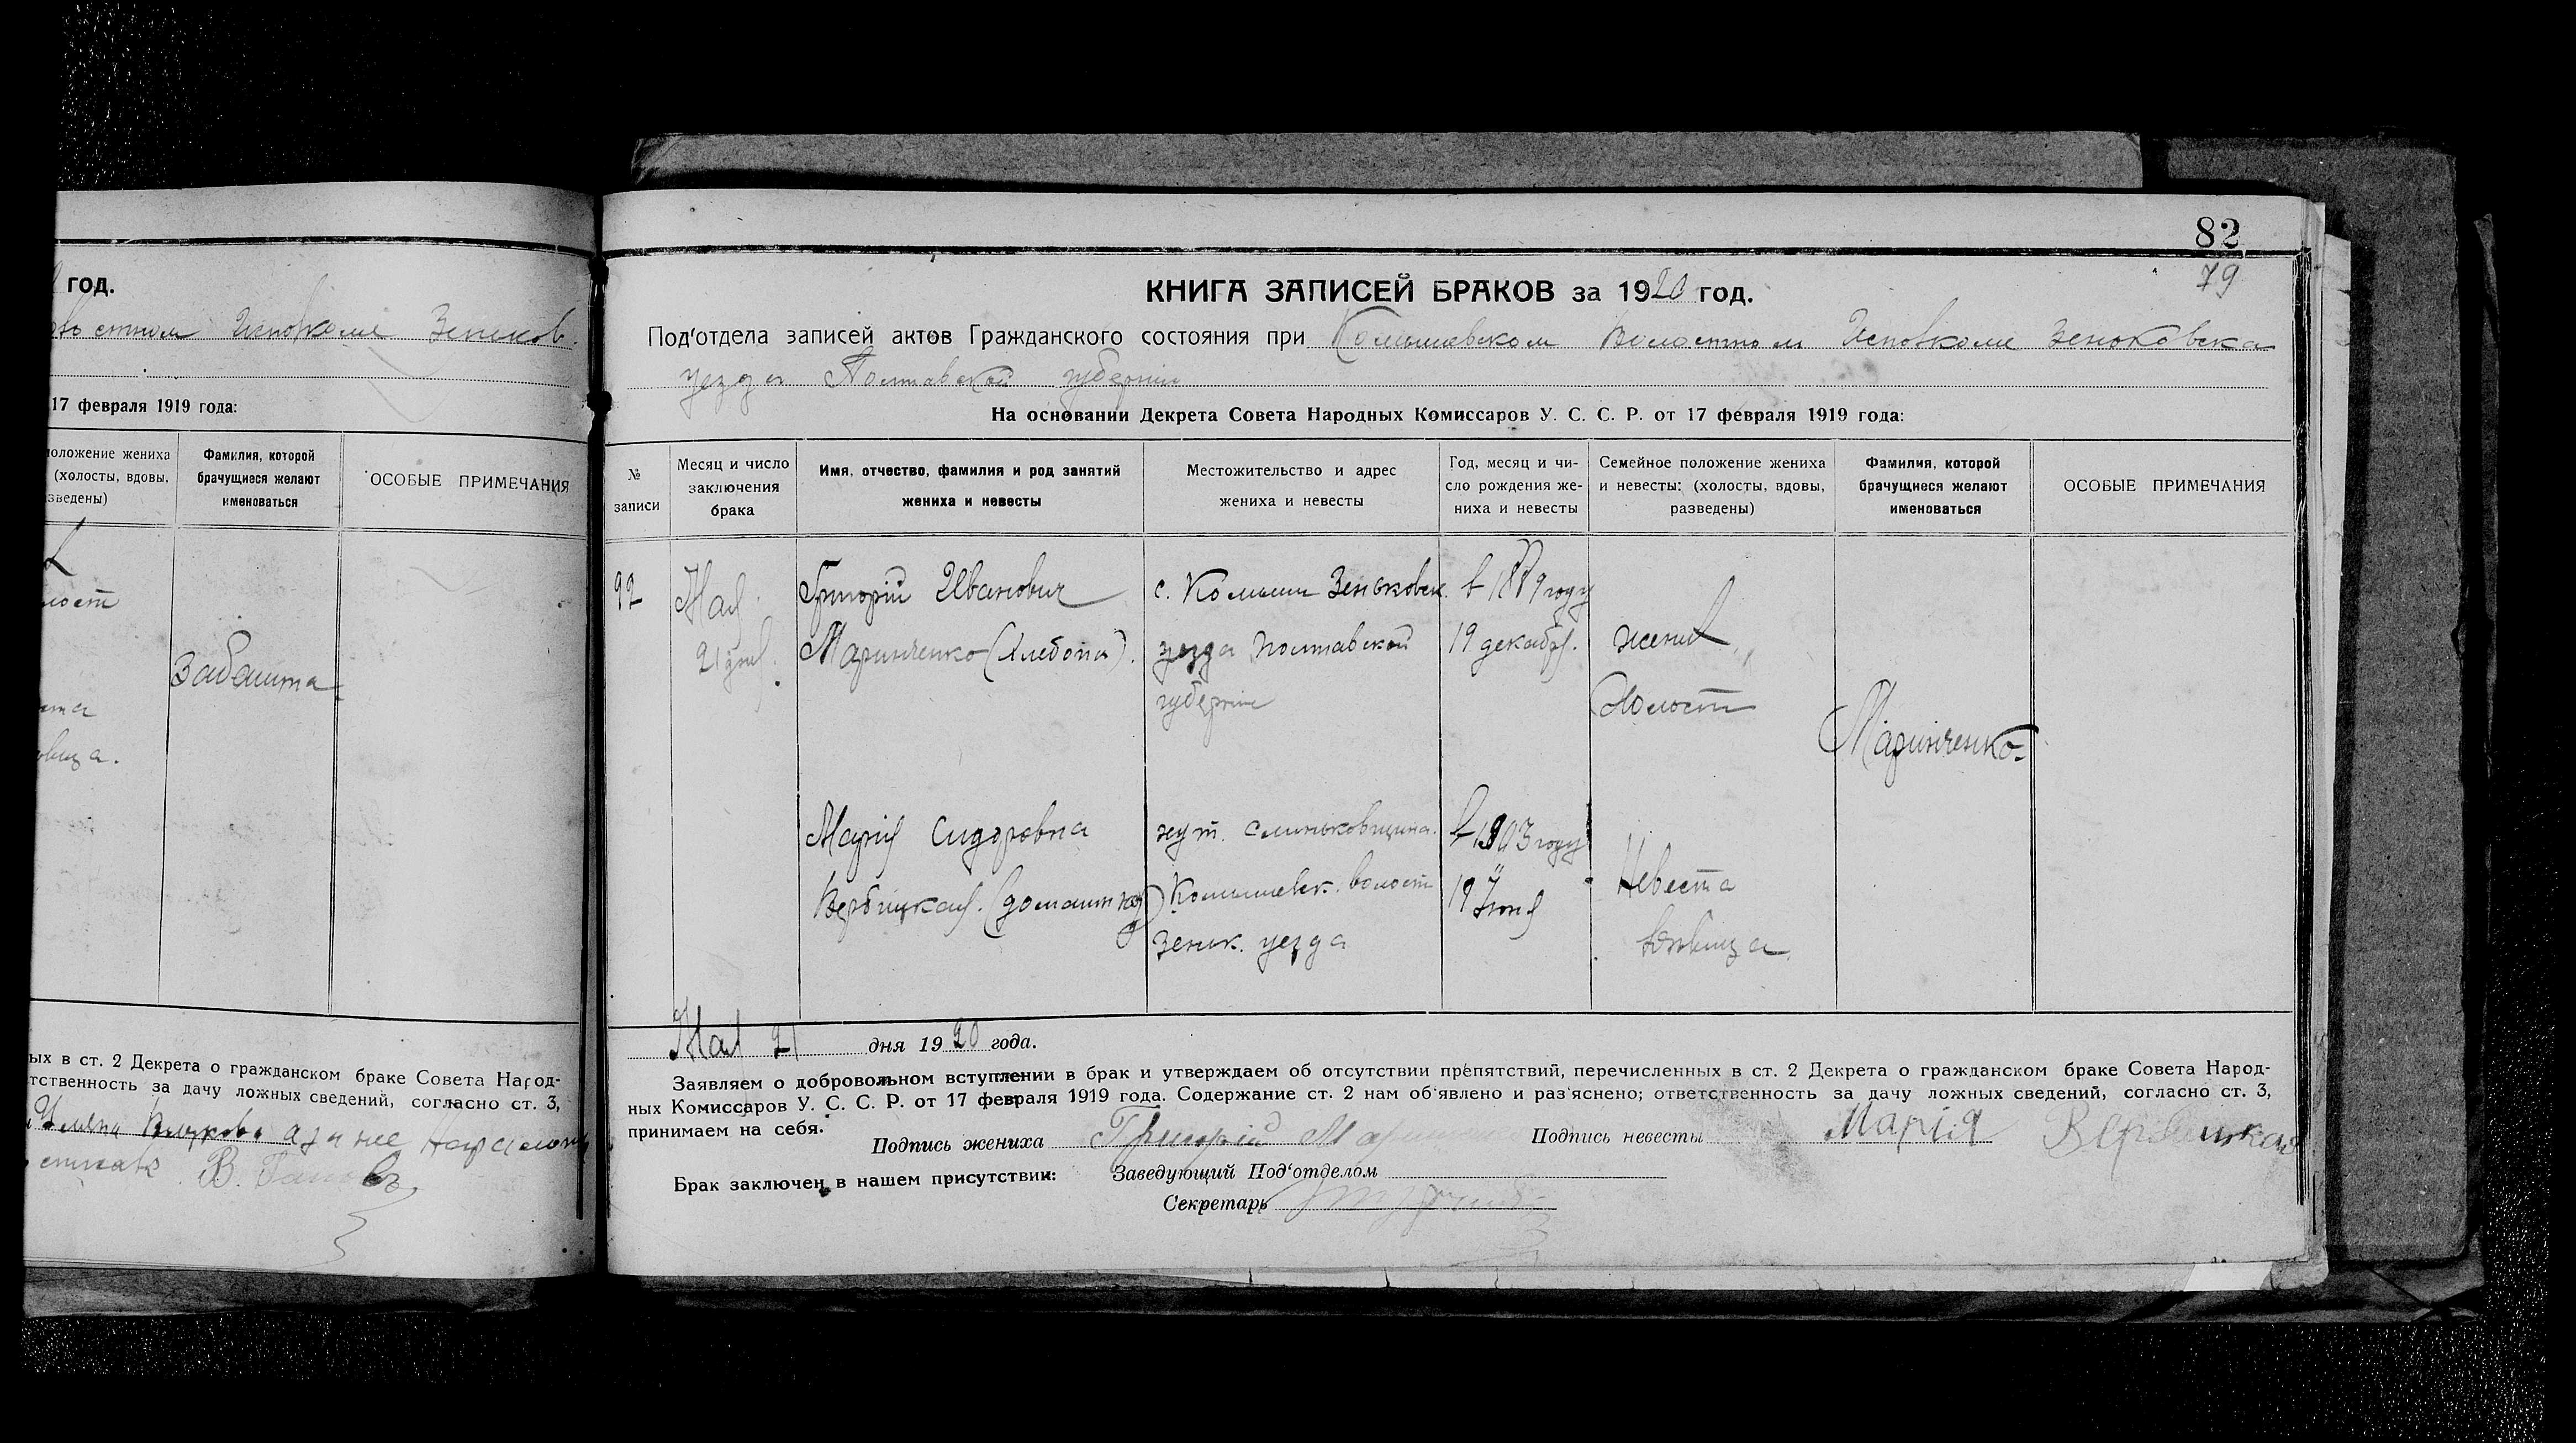 год.
Исполкоме Зеньков.
17 февраля 1919 года:
положение жениха
(холосты, вдовы,
разведены)
Фамилия, которой
брачущиеся желают
именоваться
ОСОБЫЕ ПРИМЕЧАНИЯ
Забашта
ых в ст. 2 Декрета о гражданском браке Совета Народ-
тственность за дачу ложных сведений, согласно ст. 3,
82
79
КНИГА ЗАПИСЕЙ БРАКОВ за 1920 год.
Под'отдела записей актов Гражданского состояния при Комышевском Волостном Исполкоме Зеньковска
уезда Полтавской губернии
На основании Декрета Совета Народных Комиссаров У. С. С. Р. от 17 февраля 1919 года:
№
записи
Месяц и число
заключения
брака
Имя, отчество, фамилия и род занятий
жениха и невесты
Местожительство и адрес
жениха и невесты
Год, месяц и чи-
сло рождения же-
ниха и невесты
Семейное положение жениха
и невесты: (холосты, вдовы,
разведены)
Фамилия, которой
брачущиеся желают
именоваться
ОСОБЫЕ ПРИМЕЧАНИЯ
92
Мая
21 дня.
Григорій Иванович
Маринченко (Хлебопа).
с. Комыши Зеньковск.
уезда Полтавской
губернии
в 1889 году
19 декабря.
жених
Холост
Маринченко.
Марія Сидоровна
Вербицкая. (домашняя)
хут.
Комышевск. волости
Зеньк. уезда
в 1903 году
19 Июня
Невеста
девица
Мая 21 дня 1920 года.
Заявляем о добровольном вступлении в брак и утверждаем об отсутствии препятствий, перечисленных в ст. 2 Декрета о гражданском браке Совета Народ-
ных Комиссаров У. С. С. Р. от 17 февраля 1919 года. Содержание ст. 2 нам об'явлено и раз'яснено; ответственность за дачу ложных сведений, согласно ст. 3,
принимаем на себя.
Подпись жениха Григорій Подпись невесты Марія Вербицкая
Брак заключен в нашем присутствии: Заведующий Под'отделом
Секретарь